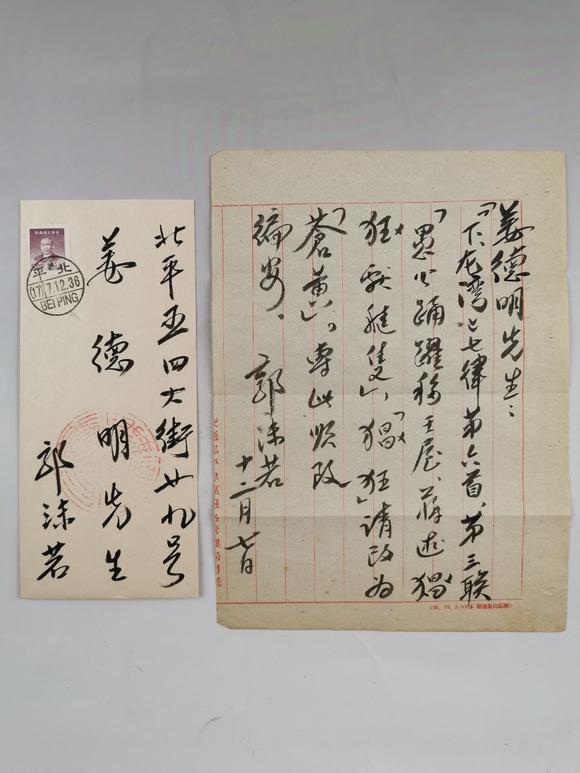 北平五四大街廿九号
姜德明先生
郭沫若
北平
(17) 7.12.36
BEIPING
姜德明先生：
「下龙湾」七律第六首，第三联
「愚公踊跃移王屋，蒋逆猖
狂献艇隻」，「猖狂」请改为
「苍黄」。专此顺致
编安。
郭沫若
十二月七日